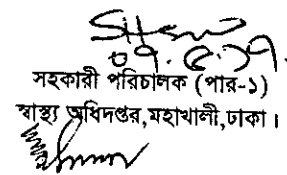 ০৭.৫.১৭.
সহকারী পরিচালক (পার-১)
স্বাস্থ্য অধিদপ্তর,মহাখালী,ঢাকা।